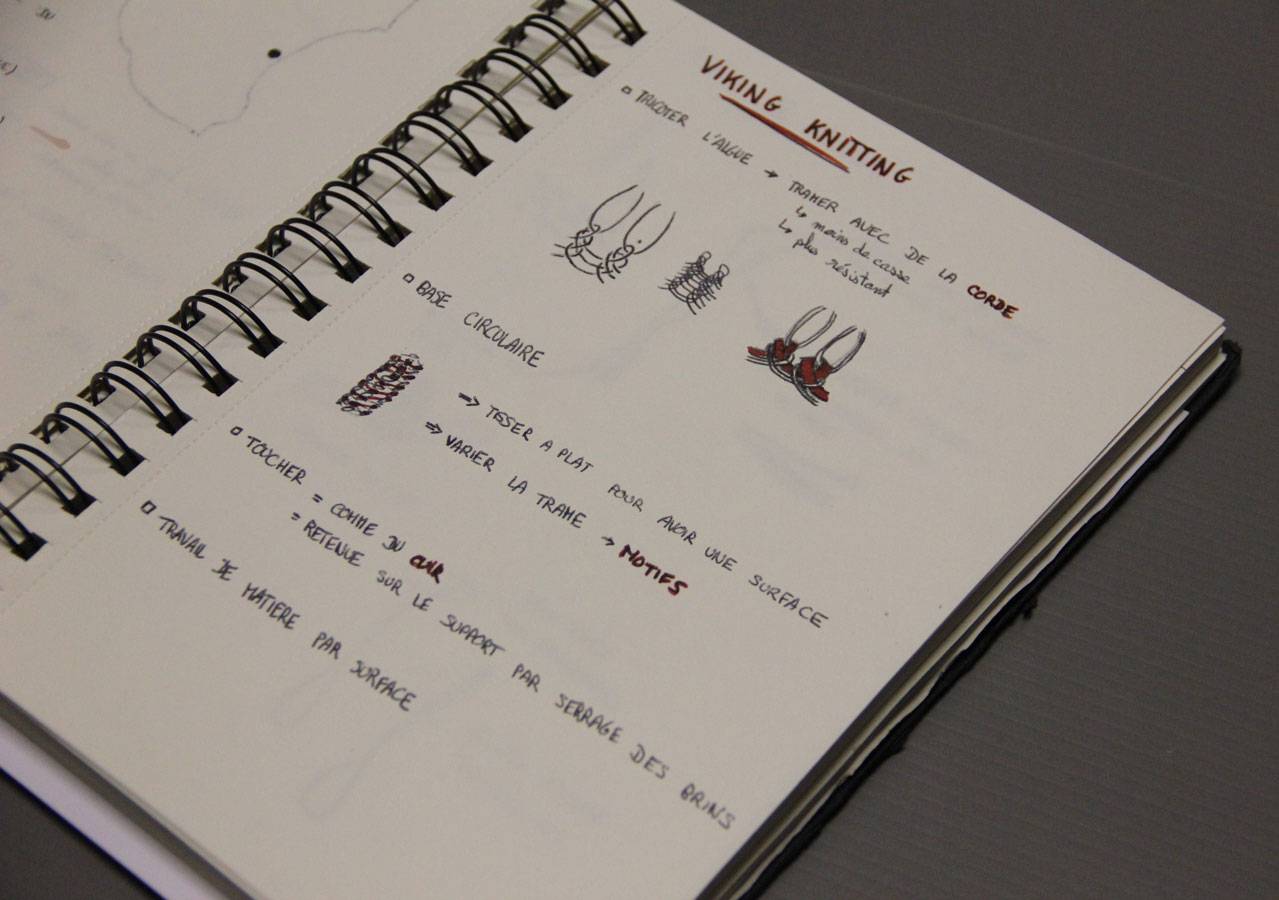 VIKING KNITTING
TRICOTER L'ALGUE → TRAMER AVEC DE LA CORDE
↳ moins de casse
↳ plus résistant
BASE CIRCULAIRE
=> TISSER A PLAT POUR AVOIR UNE SURFACE
=> VARIER LA TRAME → MOTIFS
TOUCHER = COMME DU CUIR
= RETENUE SUR LE SUPPORT PAR SERRAGE DES BRINS
TRAVAIL DE MATIERE PAR SURFACE